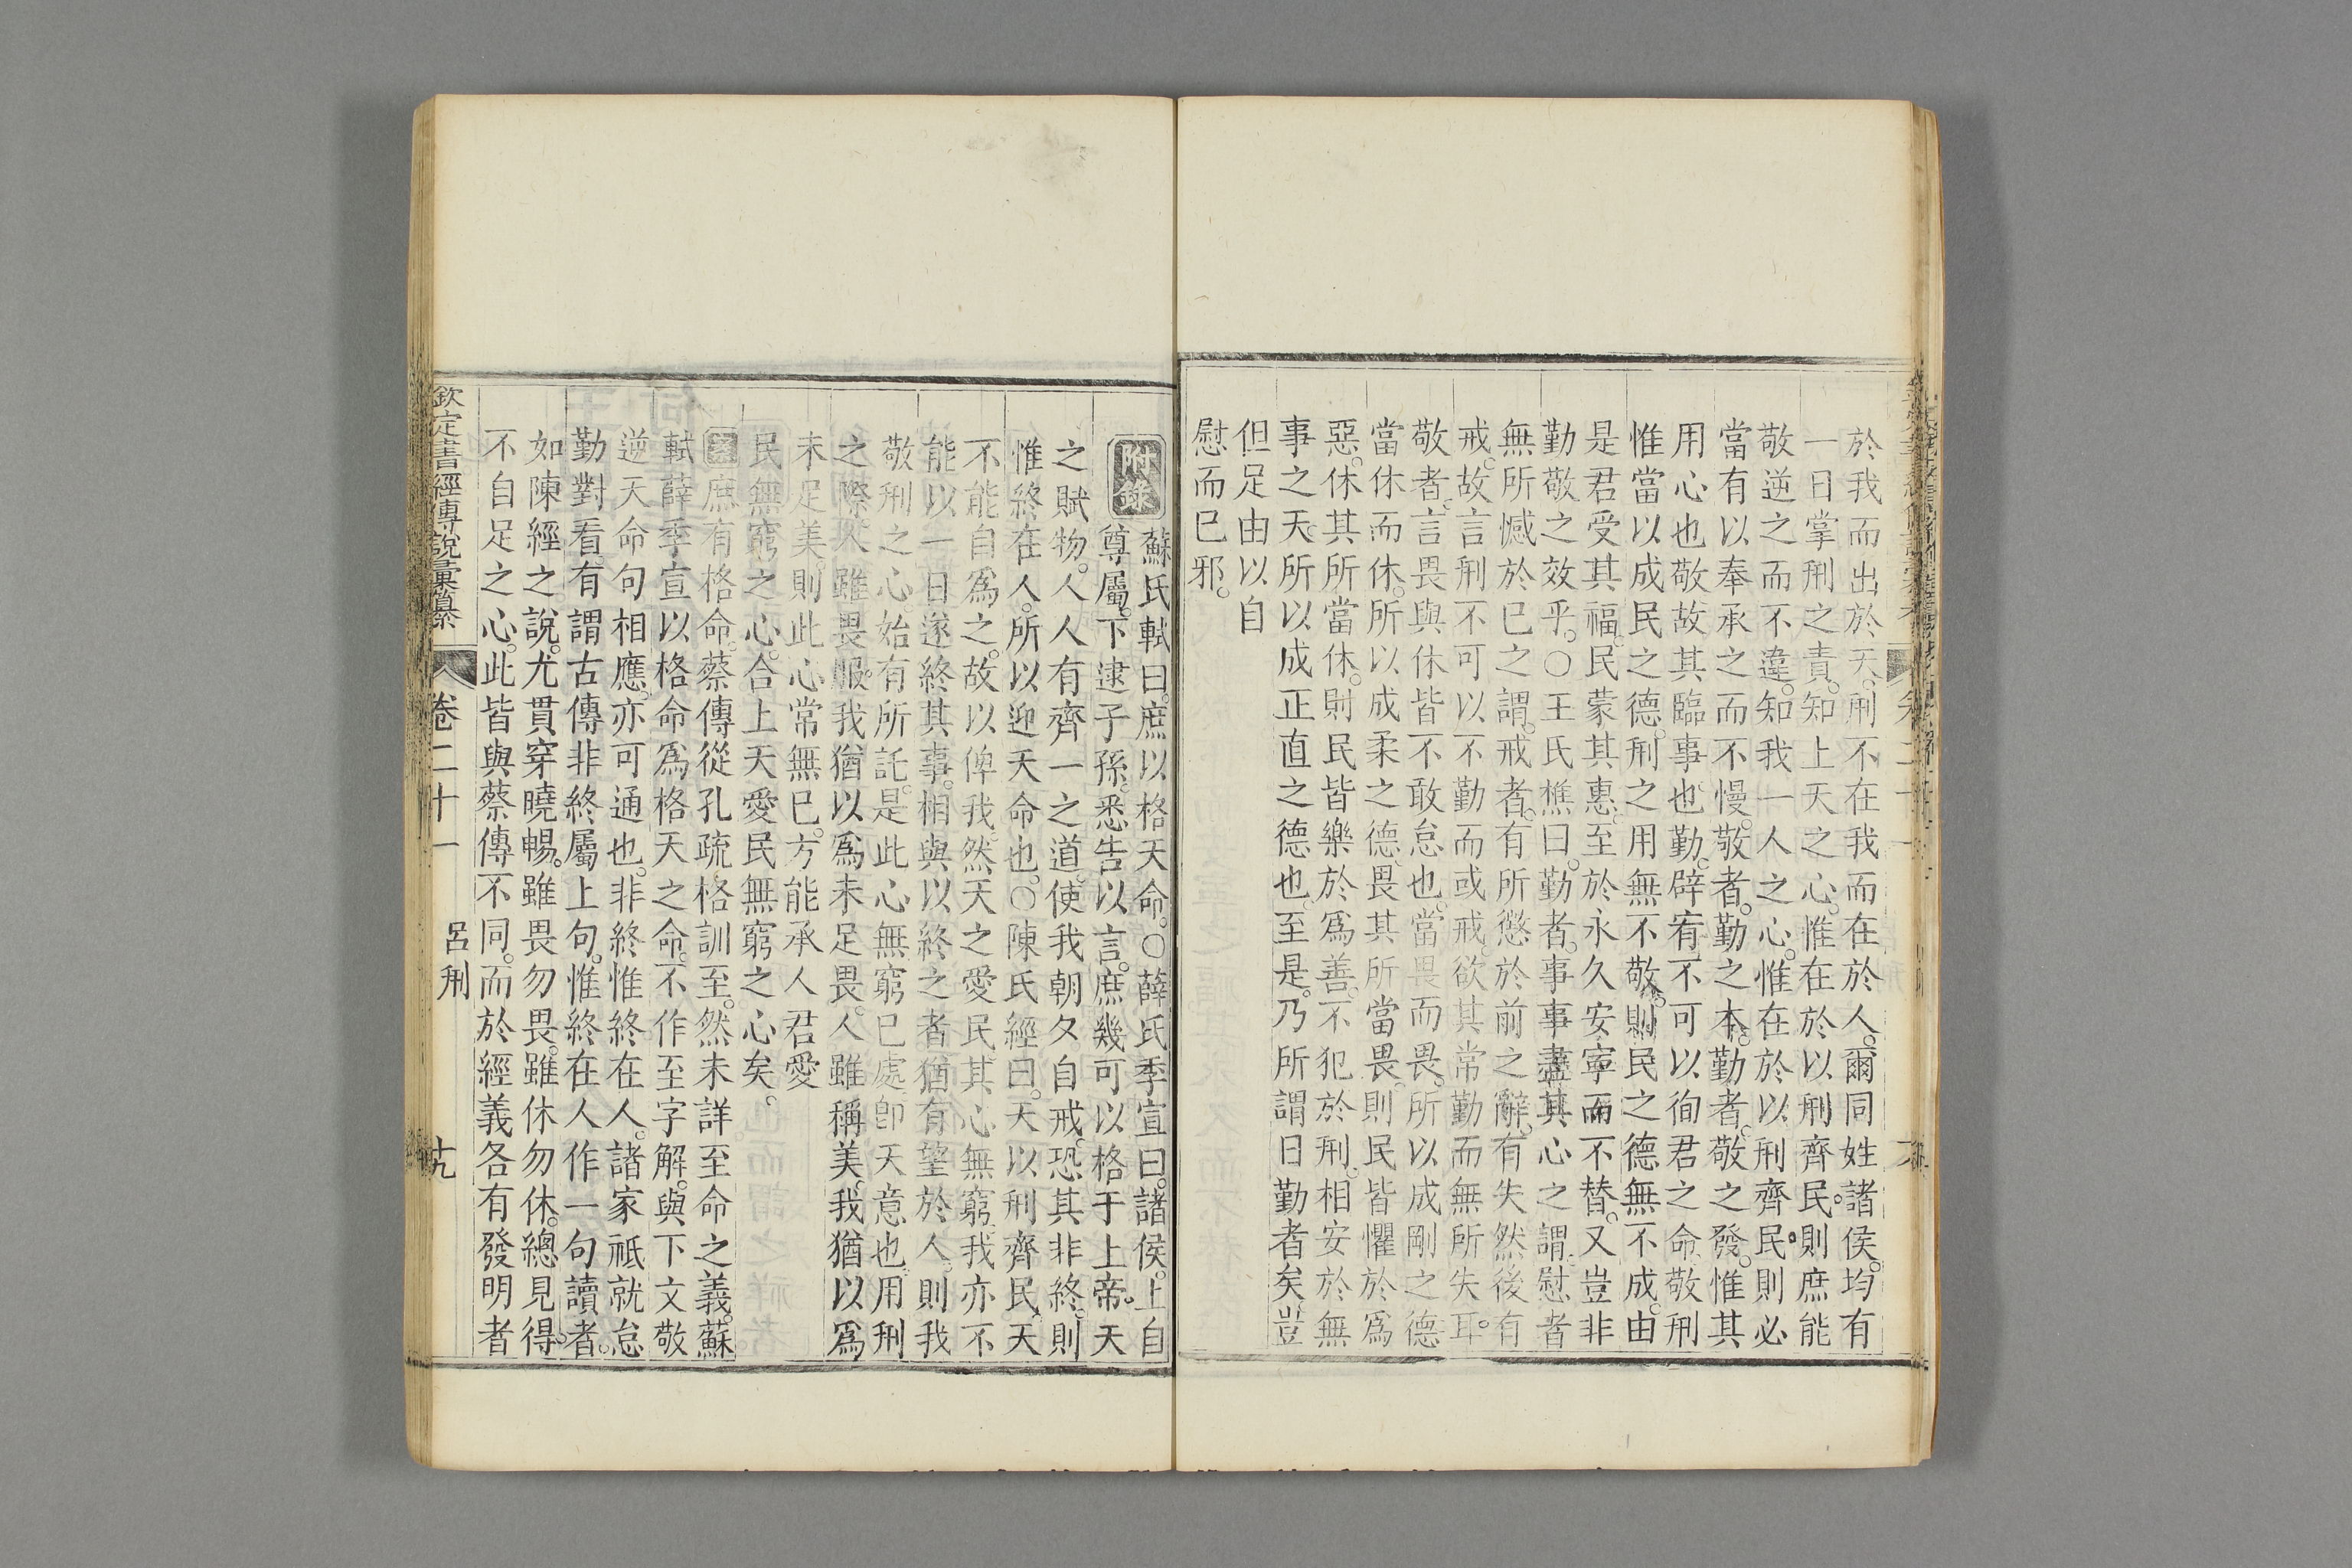 於我而出於天。刑不在我而在於人。爾同姓諸侯。均有
一日掌刑之責。知上天之心。惟在於以刑齊民。則庶能
敬逆之而不違。知我一人之心。惟在於以刑齊民。則必
當有以奉承之而不慢。敬者。勤之本。勤者。敬之發。惟其
用心也敬。故其臨事也勤。辟宥不可以徇君之命。敬刑
惟當以成民之德。刑之用無不敬。則民之德無不成。由
是君受其福。民蒙其惠。至於永久安寧而不替。又豈非
勤敬之效乎。○王氏樵曰。勤者。事事盡其心之謂。慰者
無所憾於已之謂。戒者。有所懲於前之辭。有失然後有
戒。故言刑不可以不勤而或戒。欲其常勤而無所失耳。
敬者。言畏與休皆不敢怠也。當畏而畏。所以成剛之德
當休而休。所以成柔之德。畏其所當畏。則民皆懼於爲
惡。休其所當休。則民皆樂於爲善。不犯於刑。相安於無
事之天。所以成正直之德也。至是。乃所謂日勤者矣。豈
但足由以自
慰而已邪。
附錄
蘇氏軾曰。庶以格天命。○薛氏季宣曰。諸侯。上自
尊屬。下逮子孫。悉告以言。庶幾可以格于上帝。天
之賦物。人人有齊一之道。使我朝夕自戒。恐其非終。則
惟終在人。所以迎天命也。○陳氏經曰。天以刑齊民。天
不能自爲之。故以俾我。然天之愛民其心無窮。我亦不
能以一日遂終其事。相與以終之者。猶有望於人。則我
敬刑之心。始有所託。是此心無窮已處。卽天意也。用刑
之際。人雖畏服。我猶以爲未足畏。人雖稱美。我猶以爲
未足美。則此心常無已。方能承人君愛
民無窮之心。合上天愛民無窮之心矣。
案庶有格命。蔡傳從孔疏格訓至。然未詳至命之義。蘇
軾薛季宣以格命爲格天之命。不作至字解。與下文敬
逆天命句相應。亦可通也。非終惟終在人。諸家祗就怠
勤對看。有謂古傳非終屬上句。惟終在人作一句讀者。
如陳經之說。尤貫穿曉暢。雖畏勿畏。雖休勿休。總見得
不自足之心。此皆與蔡傳不同。而於經義各有發明者
欽定書經傳說彙纂 卷二十一 呂刑 十九